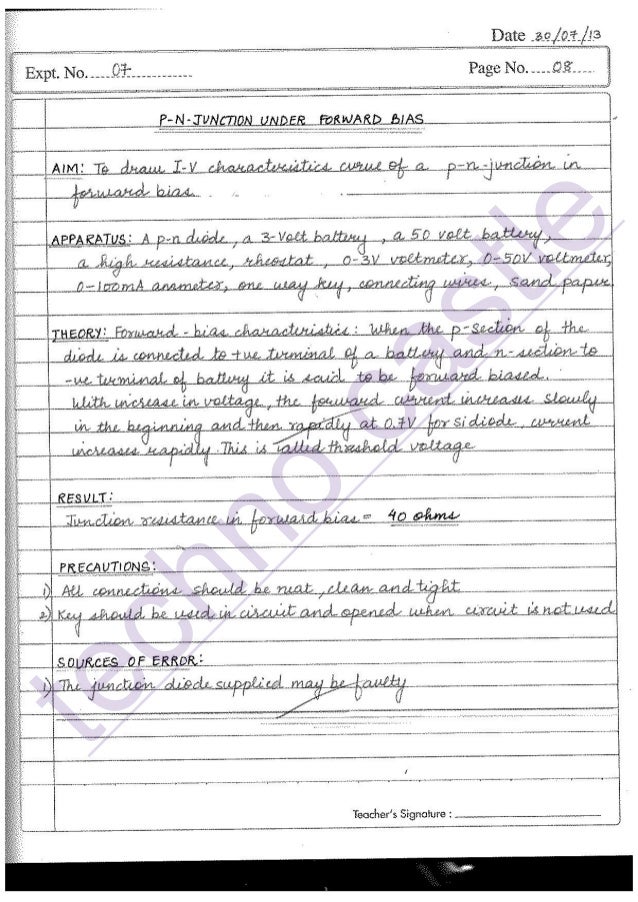 Date 30/07/13
Expt. No. 07
Page No. 08
P-N-JUNCTION UNDER FORWARD BIAS
AIM: To draw I-V characteristics curve of a p-n-junction in
forward bias.
APPARATUS: A p-n diode, a 3-Volt battery, a 50 volt battery,
a high resistance, rheostat, 0-3V voltmeter, 0-50V voltmeter,
0-100mA anameter, one way key, connecting wires, sand paper
THEORY: Forward-bias characteristics: When the p-section of the
diode is connected to +ve terminal of a battery and n-section to
-ve terminal of battery it is said to be forward biased.
With increase in voltage, the forward current increases slowly
in the beginning and then rapidly at 0.7V for si diode, current
increases rapidly. This is called threshold voltage
RESULT:
Junction resistance in forward bias = 40 ohms
PRECAUTIONS:
1) All connections should be neat, clean and tight
2) Key should be used in circuit and opened when circuit is not used
SOURCES OF ERROR:
1) The junction diode supplied may be faulty
Teacher's Signature :
techno castle